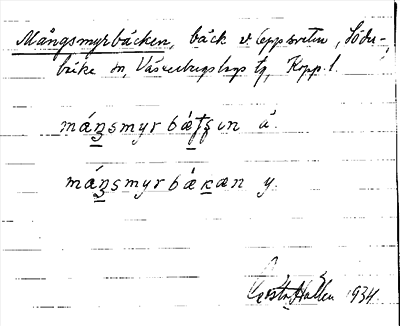 Mångsmyrbäcken, bäck v Öppsvetten, Söder-
bärke sn, Västerbergslags tg, Kopp. l.
máŋsmyrbätʃɩn ä.
máŋsmyrbäkæn y.
Gösta Hallén 1934.